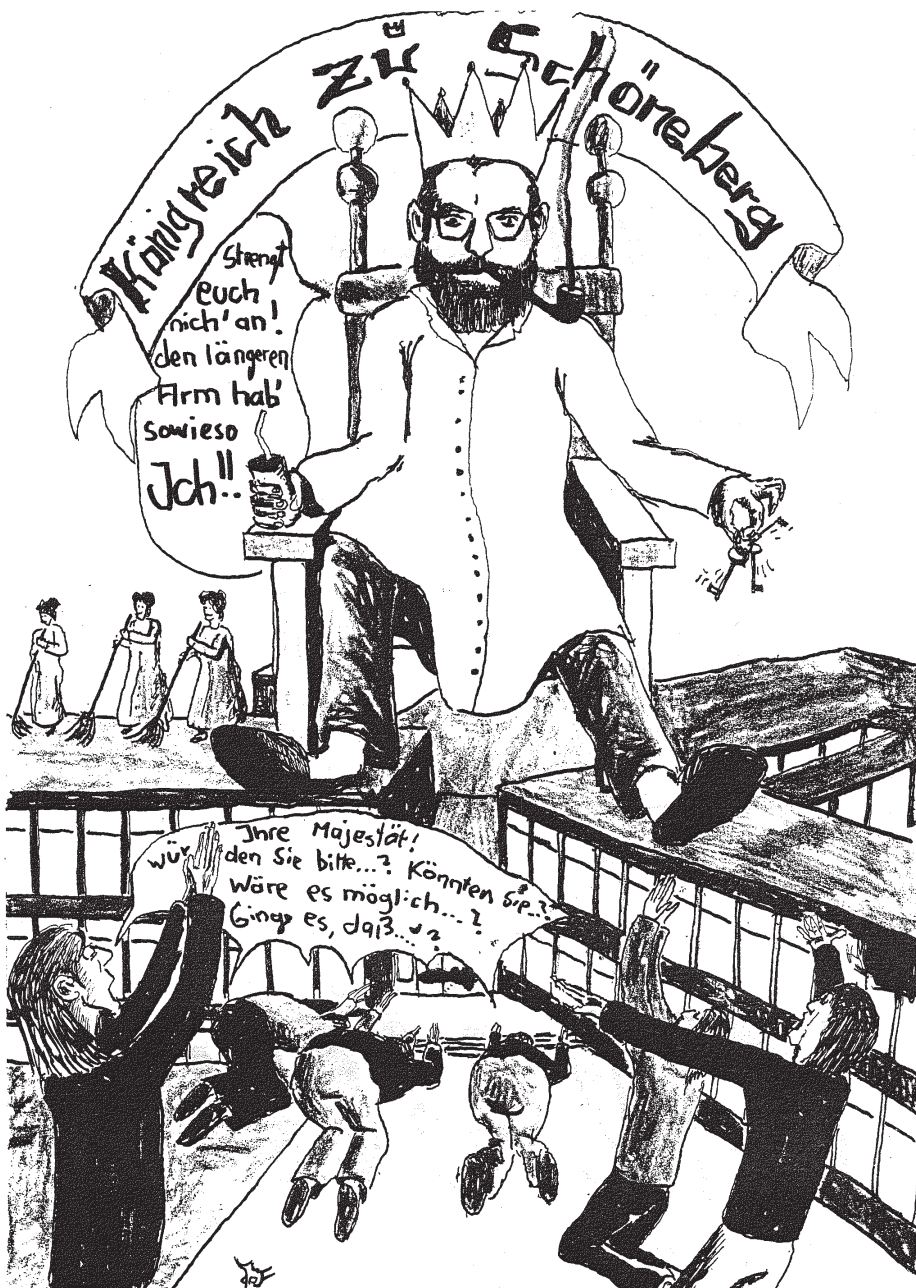 Königreich zu Schöneberg
Strengt
euch
nich' an!
den längeren
Arm hab'
sowieso
Ich!!
Ihre Majestät!
würden Sie bitte...? Könnten Sie..?
Wäre es möglich...?
Ginge es, daß....?